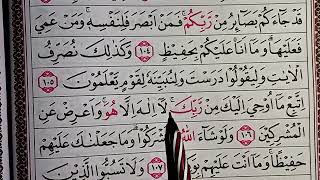 قَدْ جَآءَكُمْ بَصَآئِرُ مِنْ رَّبِّكُمْۚ فَمَنْ اَبْصَرَ فَلِنَفْسِهٖۚ وَمَنْ عَمِيَ
فَعَلَيْهَاۗ وَمَآ اَنَا۠ عَلَيْكُمْ بِحَفِيْظٍ ١٠٤ وَكَذٰلِكَ نُصَرِّفُ
الْاٰيٰتِ وَلِيَقُوْلُوْا دَرَسْتَ وَلِنُبَيِّنَهٗ لِقَوْمٍ يَّعْلَمُوْنَ ١٠٥
اِتَّبِعْ مَآ اُوْحِيَ اِلَيْكَ مِنْ رَّبِّكَۚ لَآ اِلٰهَ اِلَّا هُوَۚ وَاَعْرِضْ عَنِ
الْمُشْرِكِيْنَ ١٠٦ وَلَوْ شَآءَ اللّٰهُ اَشْرَكُوْاۗ وَمَا جَعَلْنٰكَ عَلَيْهِمْ
حَفِيْظًاۚ وَمَآ اَنْتَ عَلَيْهِمْ ١٠٧ وَلَا تَسُبُّوا الَّذِيْنَ